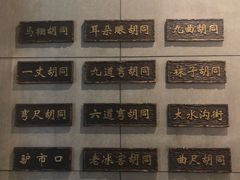 马棚胡同
耳朵眼胡同
九曲胡同
一丈胡同
九道弯胡同
袜子胡同
弯尺胡同
六道弯胡同
大水沟街
驴市口
老冰窖胡同
曲尺胡同